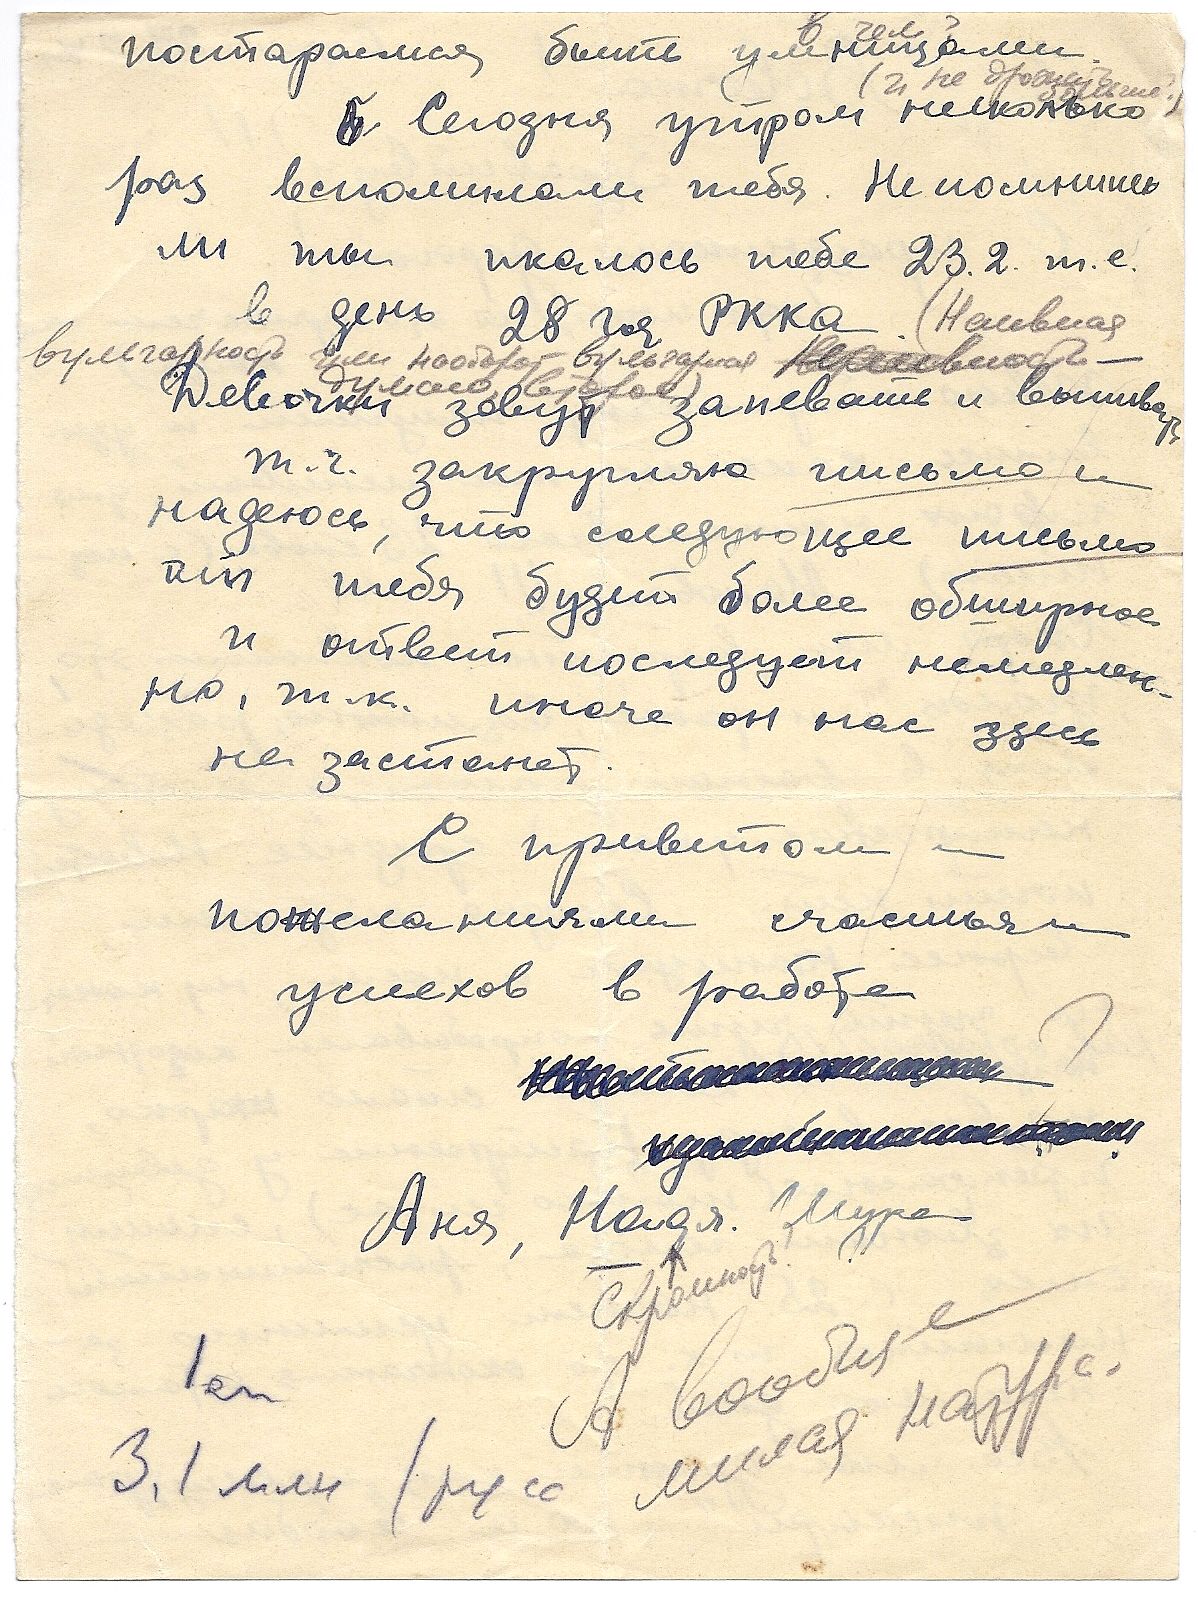 в чем?
постараемся быть умницами.
(и не дрожать больше?.)
Сегодня утром несколько
раз вспоминали тебя. Не помнишь
ли ты икалось тебе 23.2. т.е.
в день 28 год РККА. (Наивная
вульгарность или наоборот вульгарная наивность –
думаю, второе)
Девочки зовут запевать и выпивать
т.ч. закругляю письмо и
надеюсь, что следующее письмо
от тебя будет более обширное
и ответ последует немедлен-
но, т.к. иначе он нас здесь
не застанет.
С приветом и
пожеланиями счастья и
успехов в работе
?
Аня, Надя. Шура
Скромность!
А вообще
милая натура.
1 ст
3,1 млн (русс